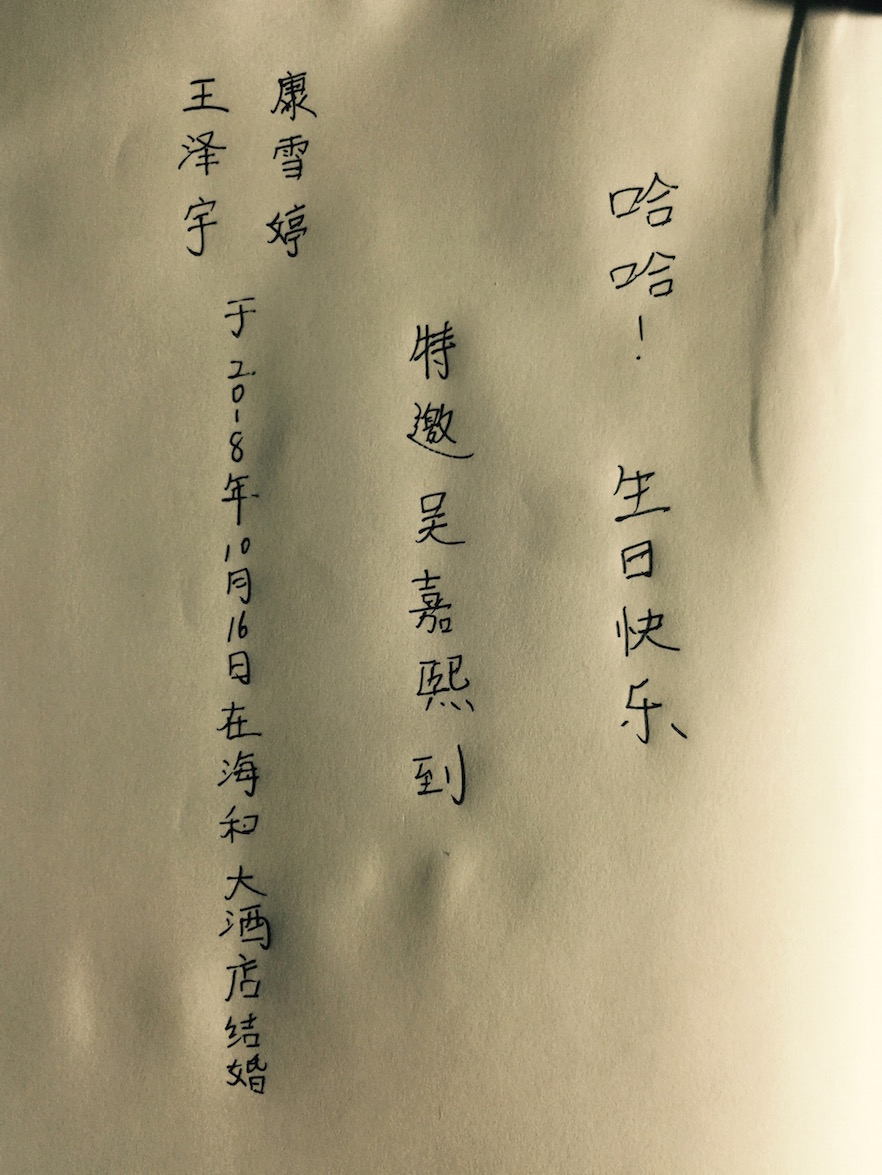 哈哈！ 生日快乐
特邀吴嘉熙到
康雪婷
王泽宇
于2018年10月16日在海和大酒店结婚